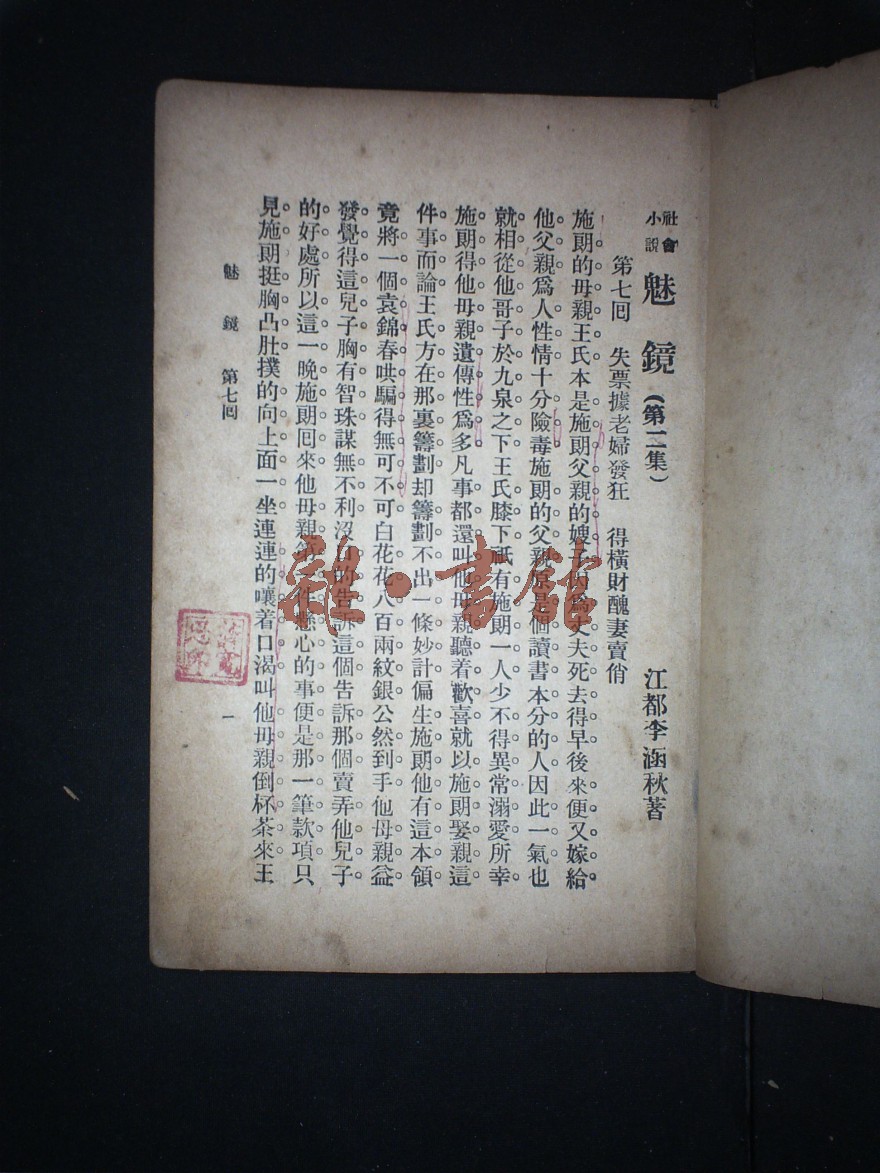 社會小說 魅鏡（第二集） 江都李涵秋著
第七回 失票據老婦發狂 得橫財醜妻賣俏
施朗的母親王氏本是施朗父親的嫂子因爲丈夫死去得早後來便又嫁給
他父親爲人性情十分險毒施朗的父親原是個讀書本分的人因此一氣也
就相從他哥子於九泉之下王氏膝下祇有施朗一人少不得異常溺愛所幸
施朗得他母親遺傳性爲多凡事都還叫他母親聽着歡喜就以施朗娶親這
件事而論王氏方在那裏籌劃却籌劃不出一條妙計偏生施朗他有這本領
竟將一個袁錦春哄騙得無可不可白花花八百兩紋銀公然到手他母親益
發覺得這兒子胸有智珠謀無不利沒口的告訴這個告訴那個賣弄他兒子
的好處所以這一晚施朗回來他母親第一件懸心的事便是那一筆款項只
見施朗挺胸凸肚撲的向上面一坐連連的嚷着口渴叫他母親倒杯茶來王
魅鏡 第七回 一
雜·書館